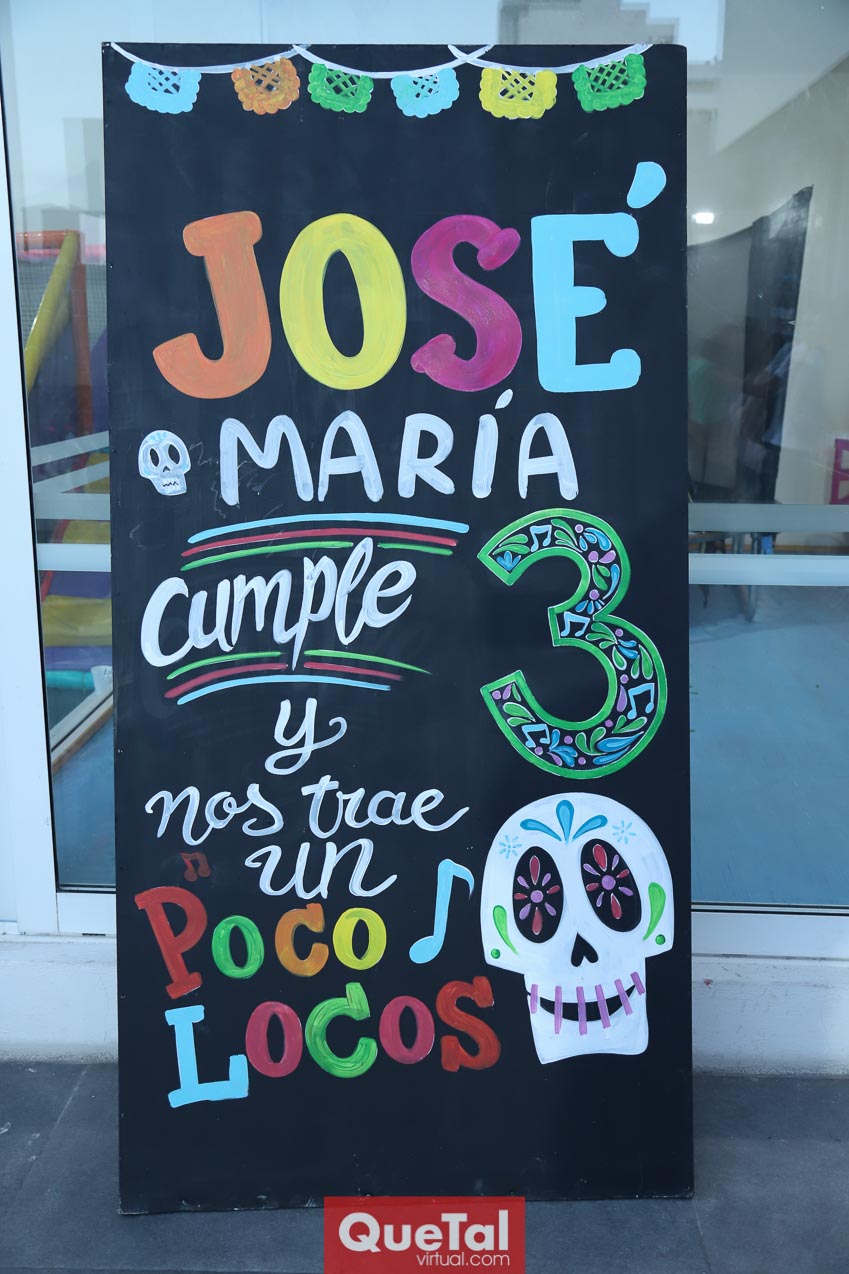 JOSÉ
MARÍA
cumple 3
y
nos trae
un
POCO
LOCOS
QueTal
virtual.com